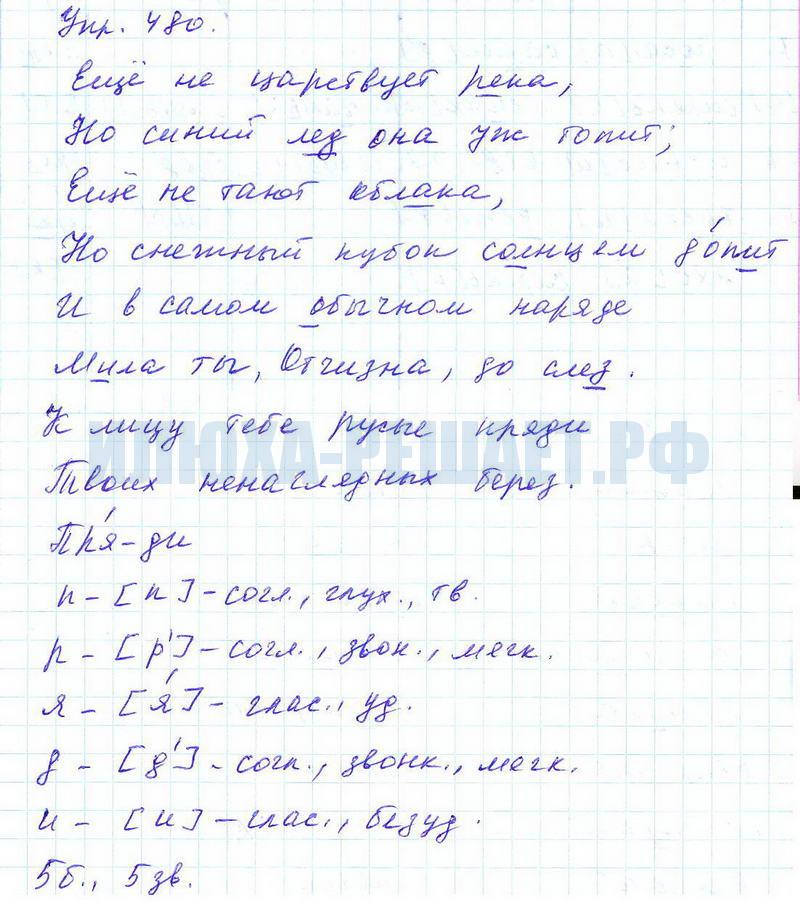 Упр. 480.
Ещё не царствует река,
Но синий лед она уж топит;
Ещё не тают облака,
Но снежный кубок солнцем до́пит
И в самом обычном наряде
Мила ты, Отчизна, до слез.
К лицу тебе русые пряди
ИЛЮХА-РЕШАЕТ.РФ
Твоих ненаглядных берез.
Пря́-ди
п - [п] - согл., глух., тв.
р - [р'] - согл., звон., мягк.
я - [я́] - глас., уд.
д - [д'] - согл., звонк., мягк.
и - [и] - глас., безуд.
5б., 5зв.